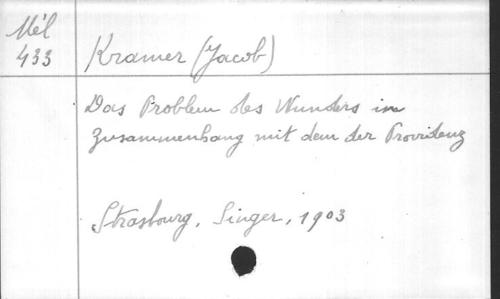 Mél
433
Kramer (Jacob)
Das Problem des Wunders im
Zusammenhang mit dem der Providenz
Strasbourg, Singer, 1903